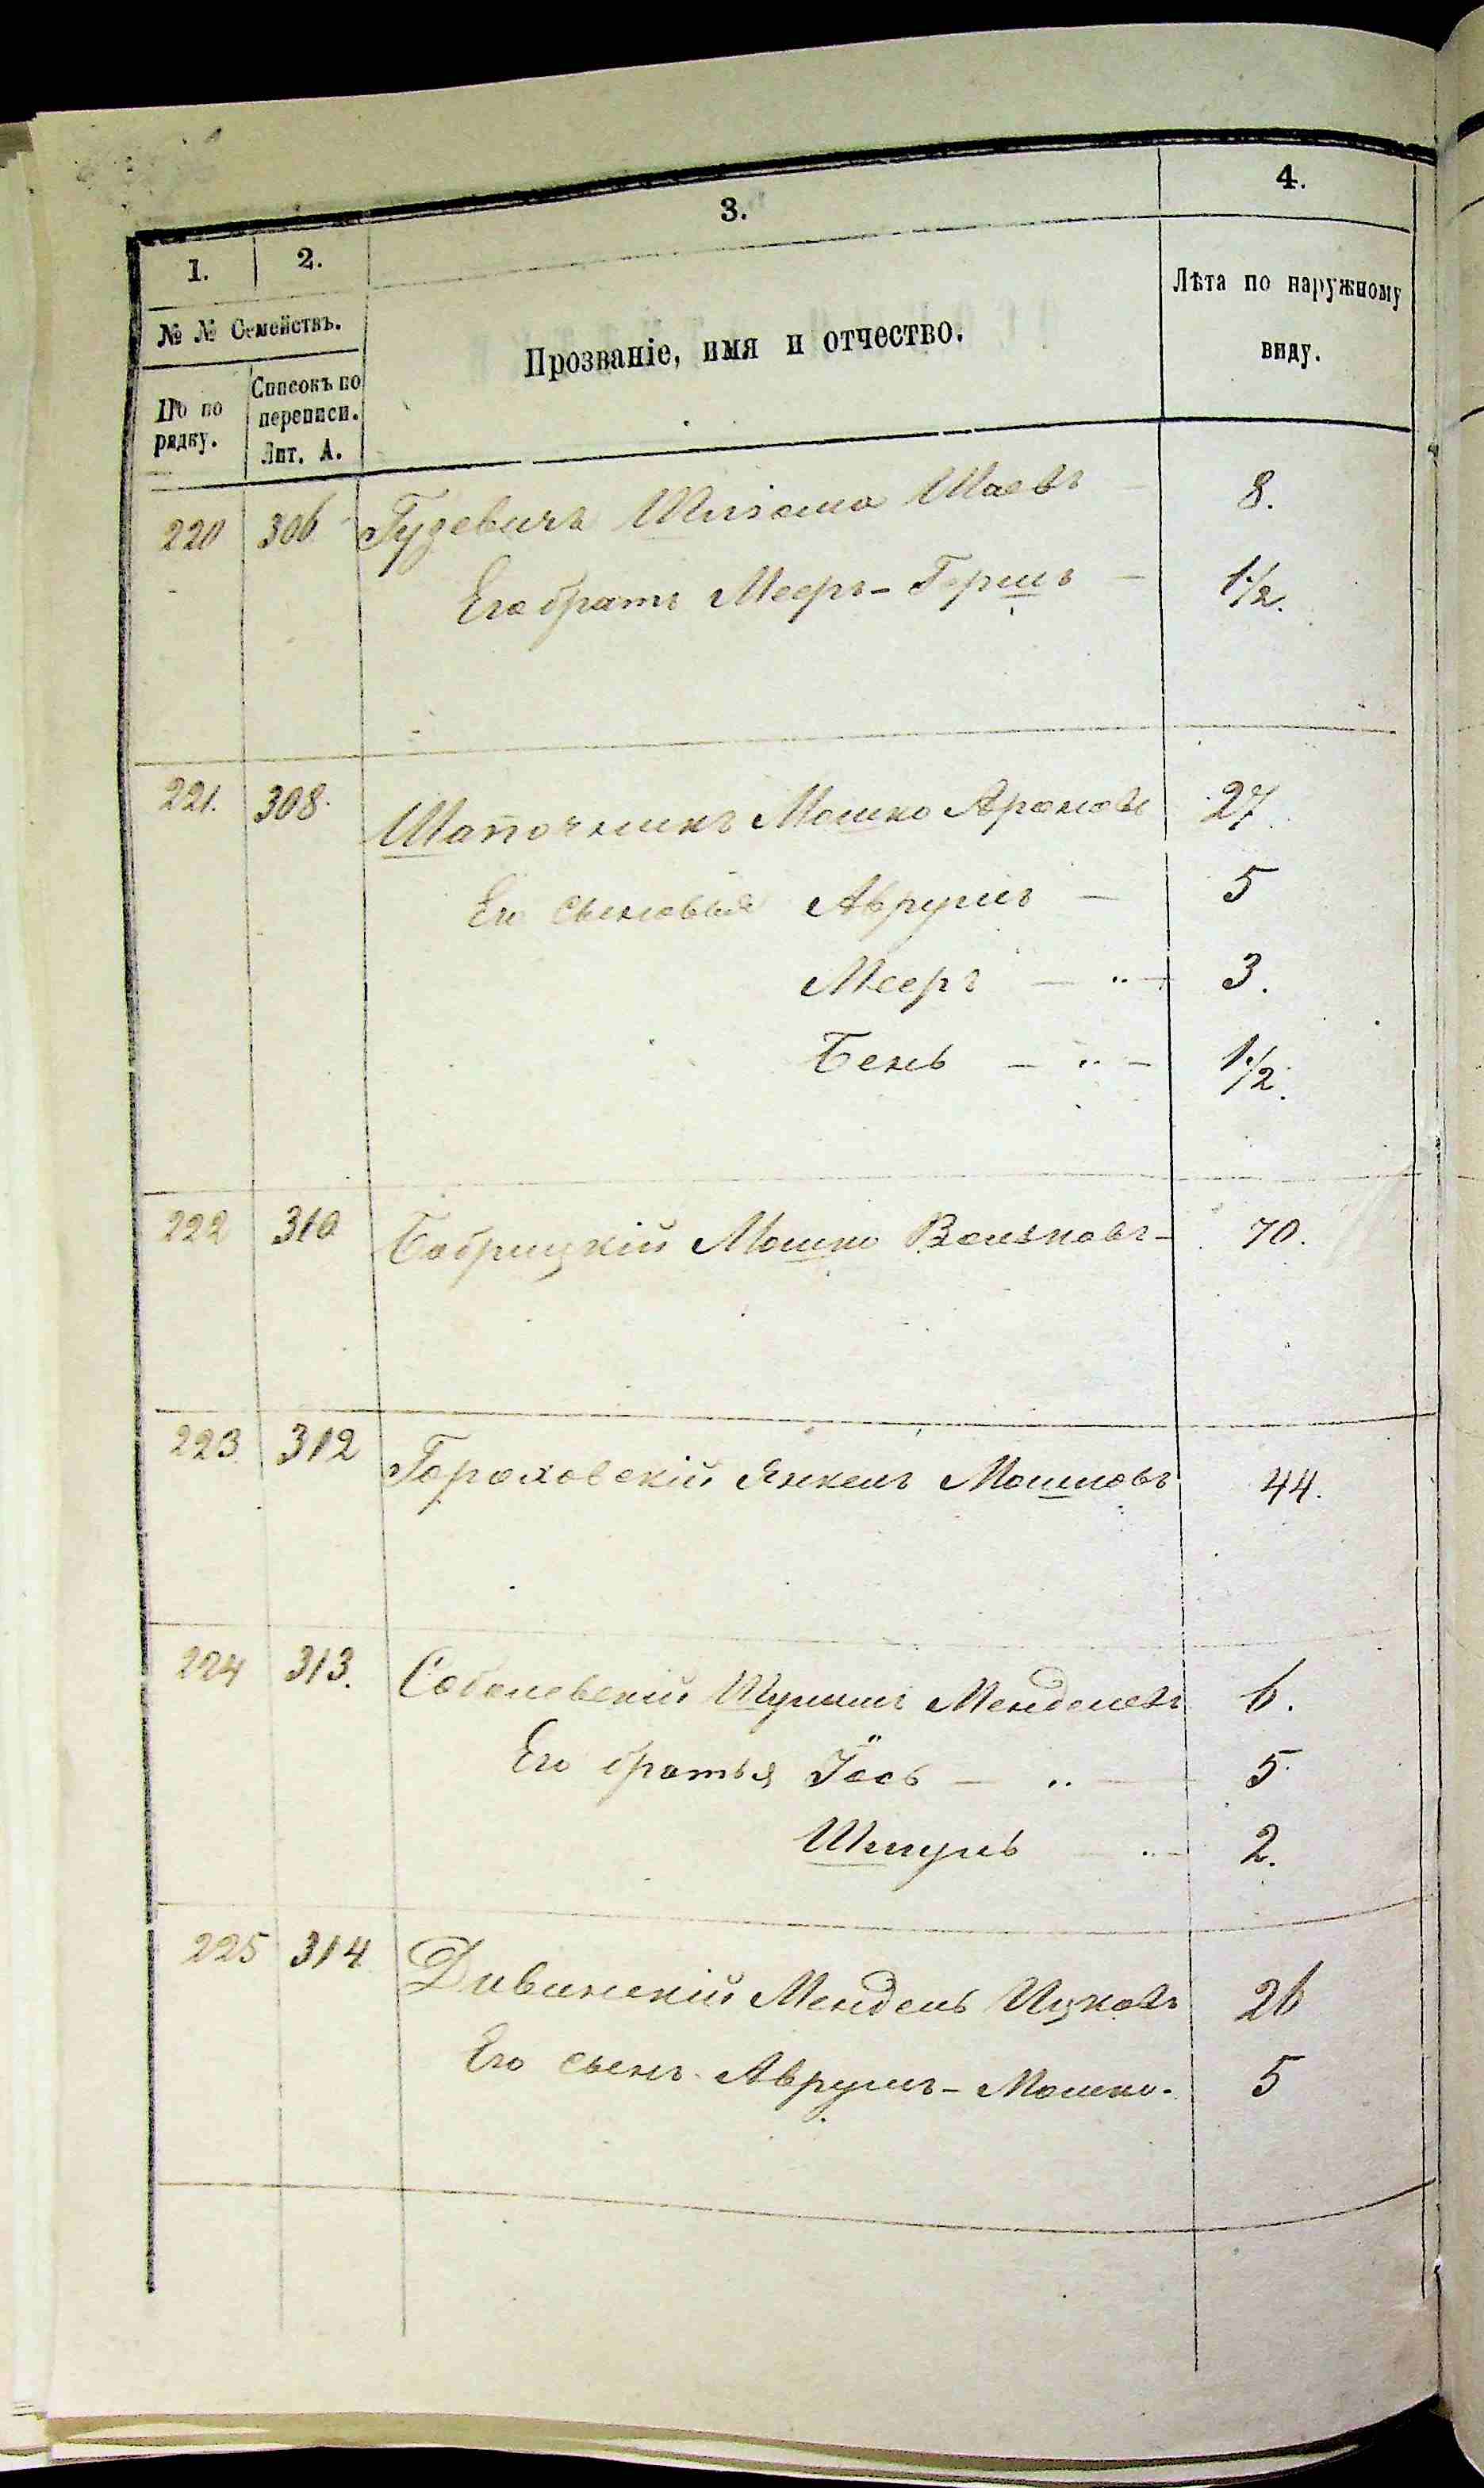 1. 2. 3. 4.
№ № Семействъ.
По по рядку.
Списокъ по переписи. Лит. А.
Прозваніе, имя и отчество.
Лѣта по наружному виду.
220 306 Гузевичъ Шлёма Шаевъ 8.
Его братъ Мееръ-Гершъ — 1 1/2.
221. 308. Шапочникъ Мошко Ароновъ 27.
Его сыновья Аврумъ — 5
Мееръ — „ — 3.
Бень — „ — 1 1/2.
222 310 Бобрицкій Мошко Вольковъ - 70.
223 312 Гороховскій Янкель Мошковъ 44.
224 313. Соболевскій Менделевъ 6.
Его братья Іось — „ — 5.
Шмуль — „ — 2.
225 314 Дивинскій Мендель Ицковъ 26
Его сынъ Аврумъ-Мошко. 5